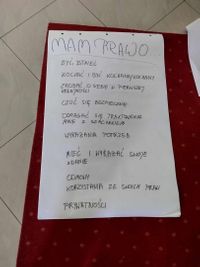 MAM PRAWO
BYĆ ISTNIEĆ
KOCHAĆ I BYĆ KOCHANYM/KOCHANĄ
ZADBAĆ O SIEBIE W PIERWSZEJ
KOLEJNOŚCI
CZUĆ SIĘ BEZPIECZNIE
DOMAGAĆ SIĘ TRAKTOWANIA
MNIE Z SZACUNKIEM
WYRAŻANIA POTRZEB
MIEĆ I WYRAŻAĆ SWOJE
ZDANIE
ODMOWY
KORZYSTANIA ZE SWOICH PRAW
PRYWATNOŚCI